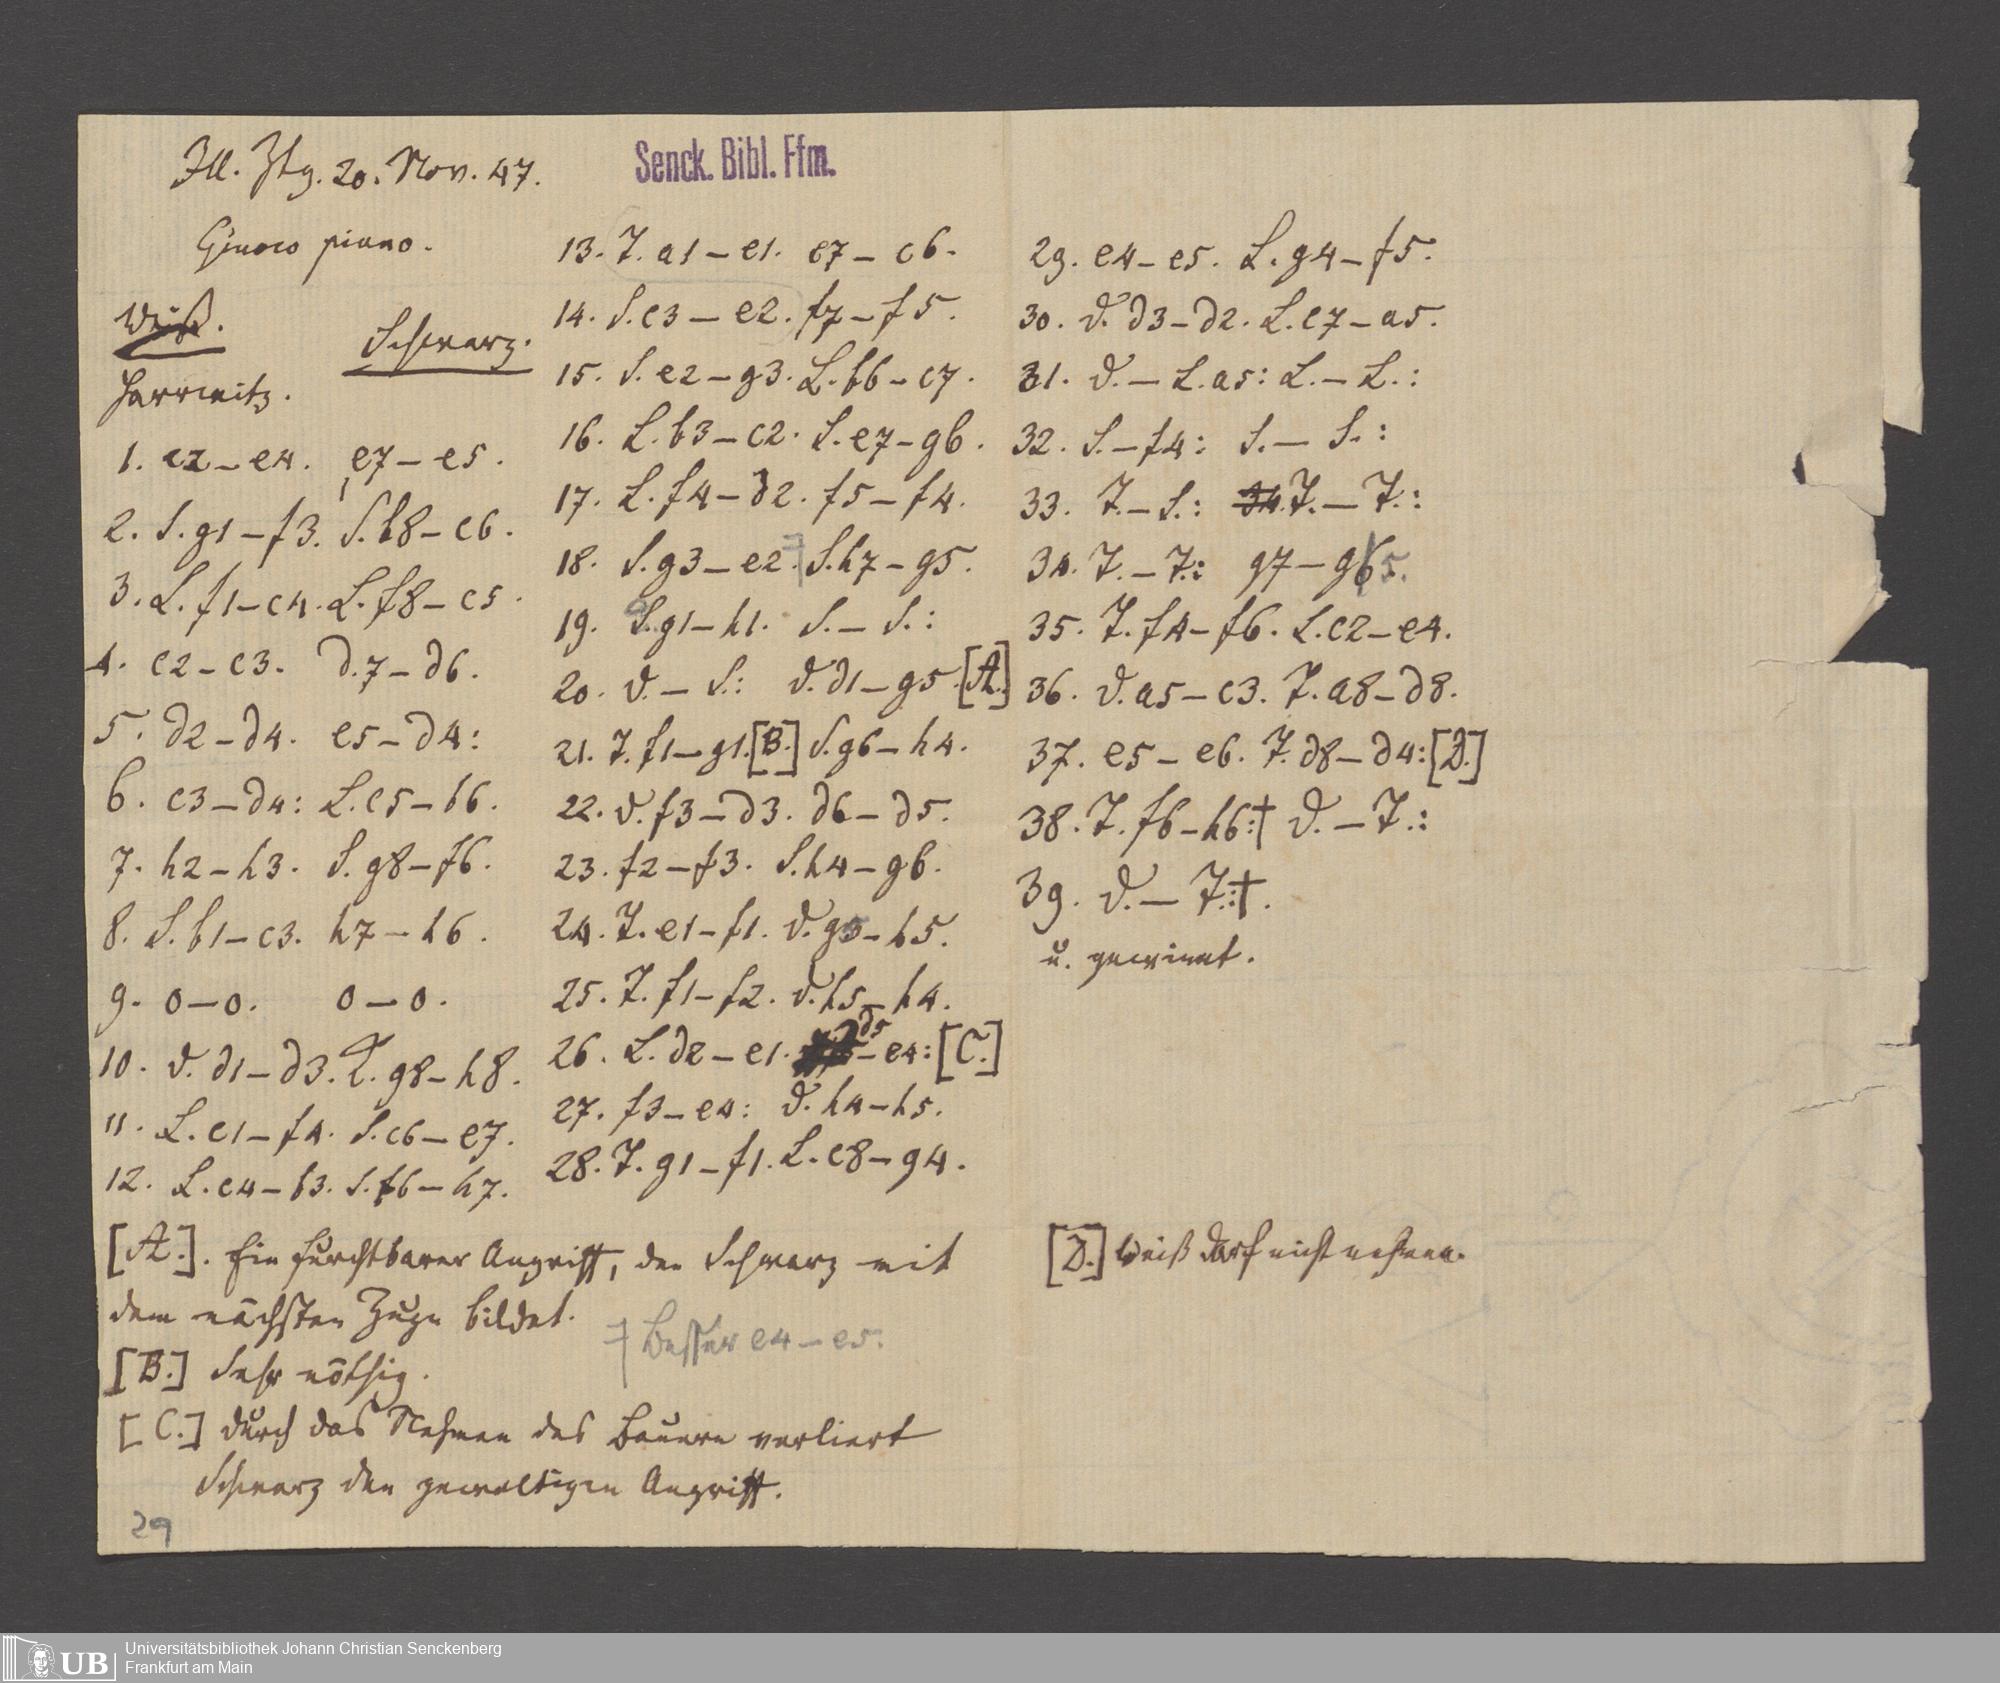 Ill. Ztg. 20. Nov. 47.
Senck. Bibl. Ffm.
Giuoco piano.
Weiß.
Schwarz.
Harrwitz.
1. e2 – e4. e7 – e5.
2. S. g1 – f3. S. b8 – c6.
3. L. f1 – c4. L. f8 – c5.
4. c2 – c3. d.7 – d6.
5. d2 – d4. e5 – d4:
6. c3 – d4: L. c5 – b6.
7. h2 – h3. S. g8 – f6.
8. S. b1 – c3. h7 – h6.
9. 0 – 0. 0 – 0.
10. D. d1 – d3. K. g8 – h8.
11. L. c1 – f4. S. c6 – e7.
12. L. c4 – b3. S. f6 – h7.
13. T. a1 – e1. c7 – c6.
14. S. c3 – e2. f7 – f5.
15. S. e2 – g3. L. b6 – c7.
16. L. b3 – c2. S. e7 – g6.
17. L. f4 – d2. f5 – f4.
18. S. g3 – e2. S. h7 – g5.
19. g1 – h1. S. – S.:
20. D. – S.: D. d1 – g5. [A.]
21. T. f1 – g1. [B.] S. g6 – h4.
22. D. f3 – d3. d6 – d5.
23. f2 – f3. S. h4 – g6.
24. T. e1 – f1. D. g5 – h5.
25. T. f1 – f2. D. h5 – h4.
26. L. d2 – e1. d5 – e4: [C.]
27. f3 – e4: D. h4 – h5.
28. T. g1 – f1. L. c8 – g4.
29. e4 – e5. L. g4 – f5.
30. D. d3 – d2. L. c7 – a5.
31. D. – L. a5: L. – L.:
32. S. – f4: S. – S.:
33. T. – S.: 34. T. – T.:
34. T. – T.: g7 – g5.
35. T. f4 – f6. L. c2 – e4.
36. D. a5 – c3. T. a8 – d8.
37. e5 – e6. T. d8 – d4: [D.]
38. T. f6 – h6:† D. – T.:
39. D. – T.:†.
u. gewinnt.
[A.]. Ein furchtbarer Angriff, den Schwarz mit
dem nächsten Zuge bildet.
Besser e4 – e5.
[B.] Sehr nöthig.
[C.] durch das Nehmen des Bauern verliert
Schwarz den gewaltigen Angriff.
[D.] Weiß darf nicht nehmen.
29
UB
Universitätsbibliothek Johann Christian Senckenberg
Frankfurt am Main